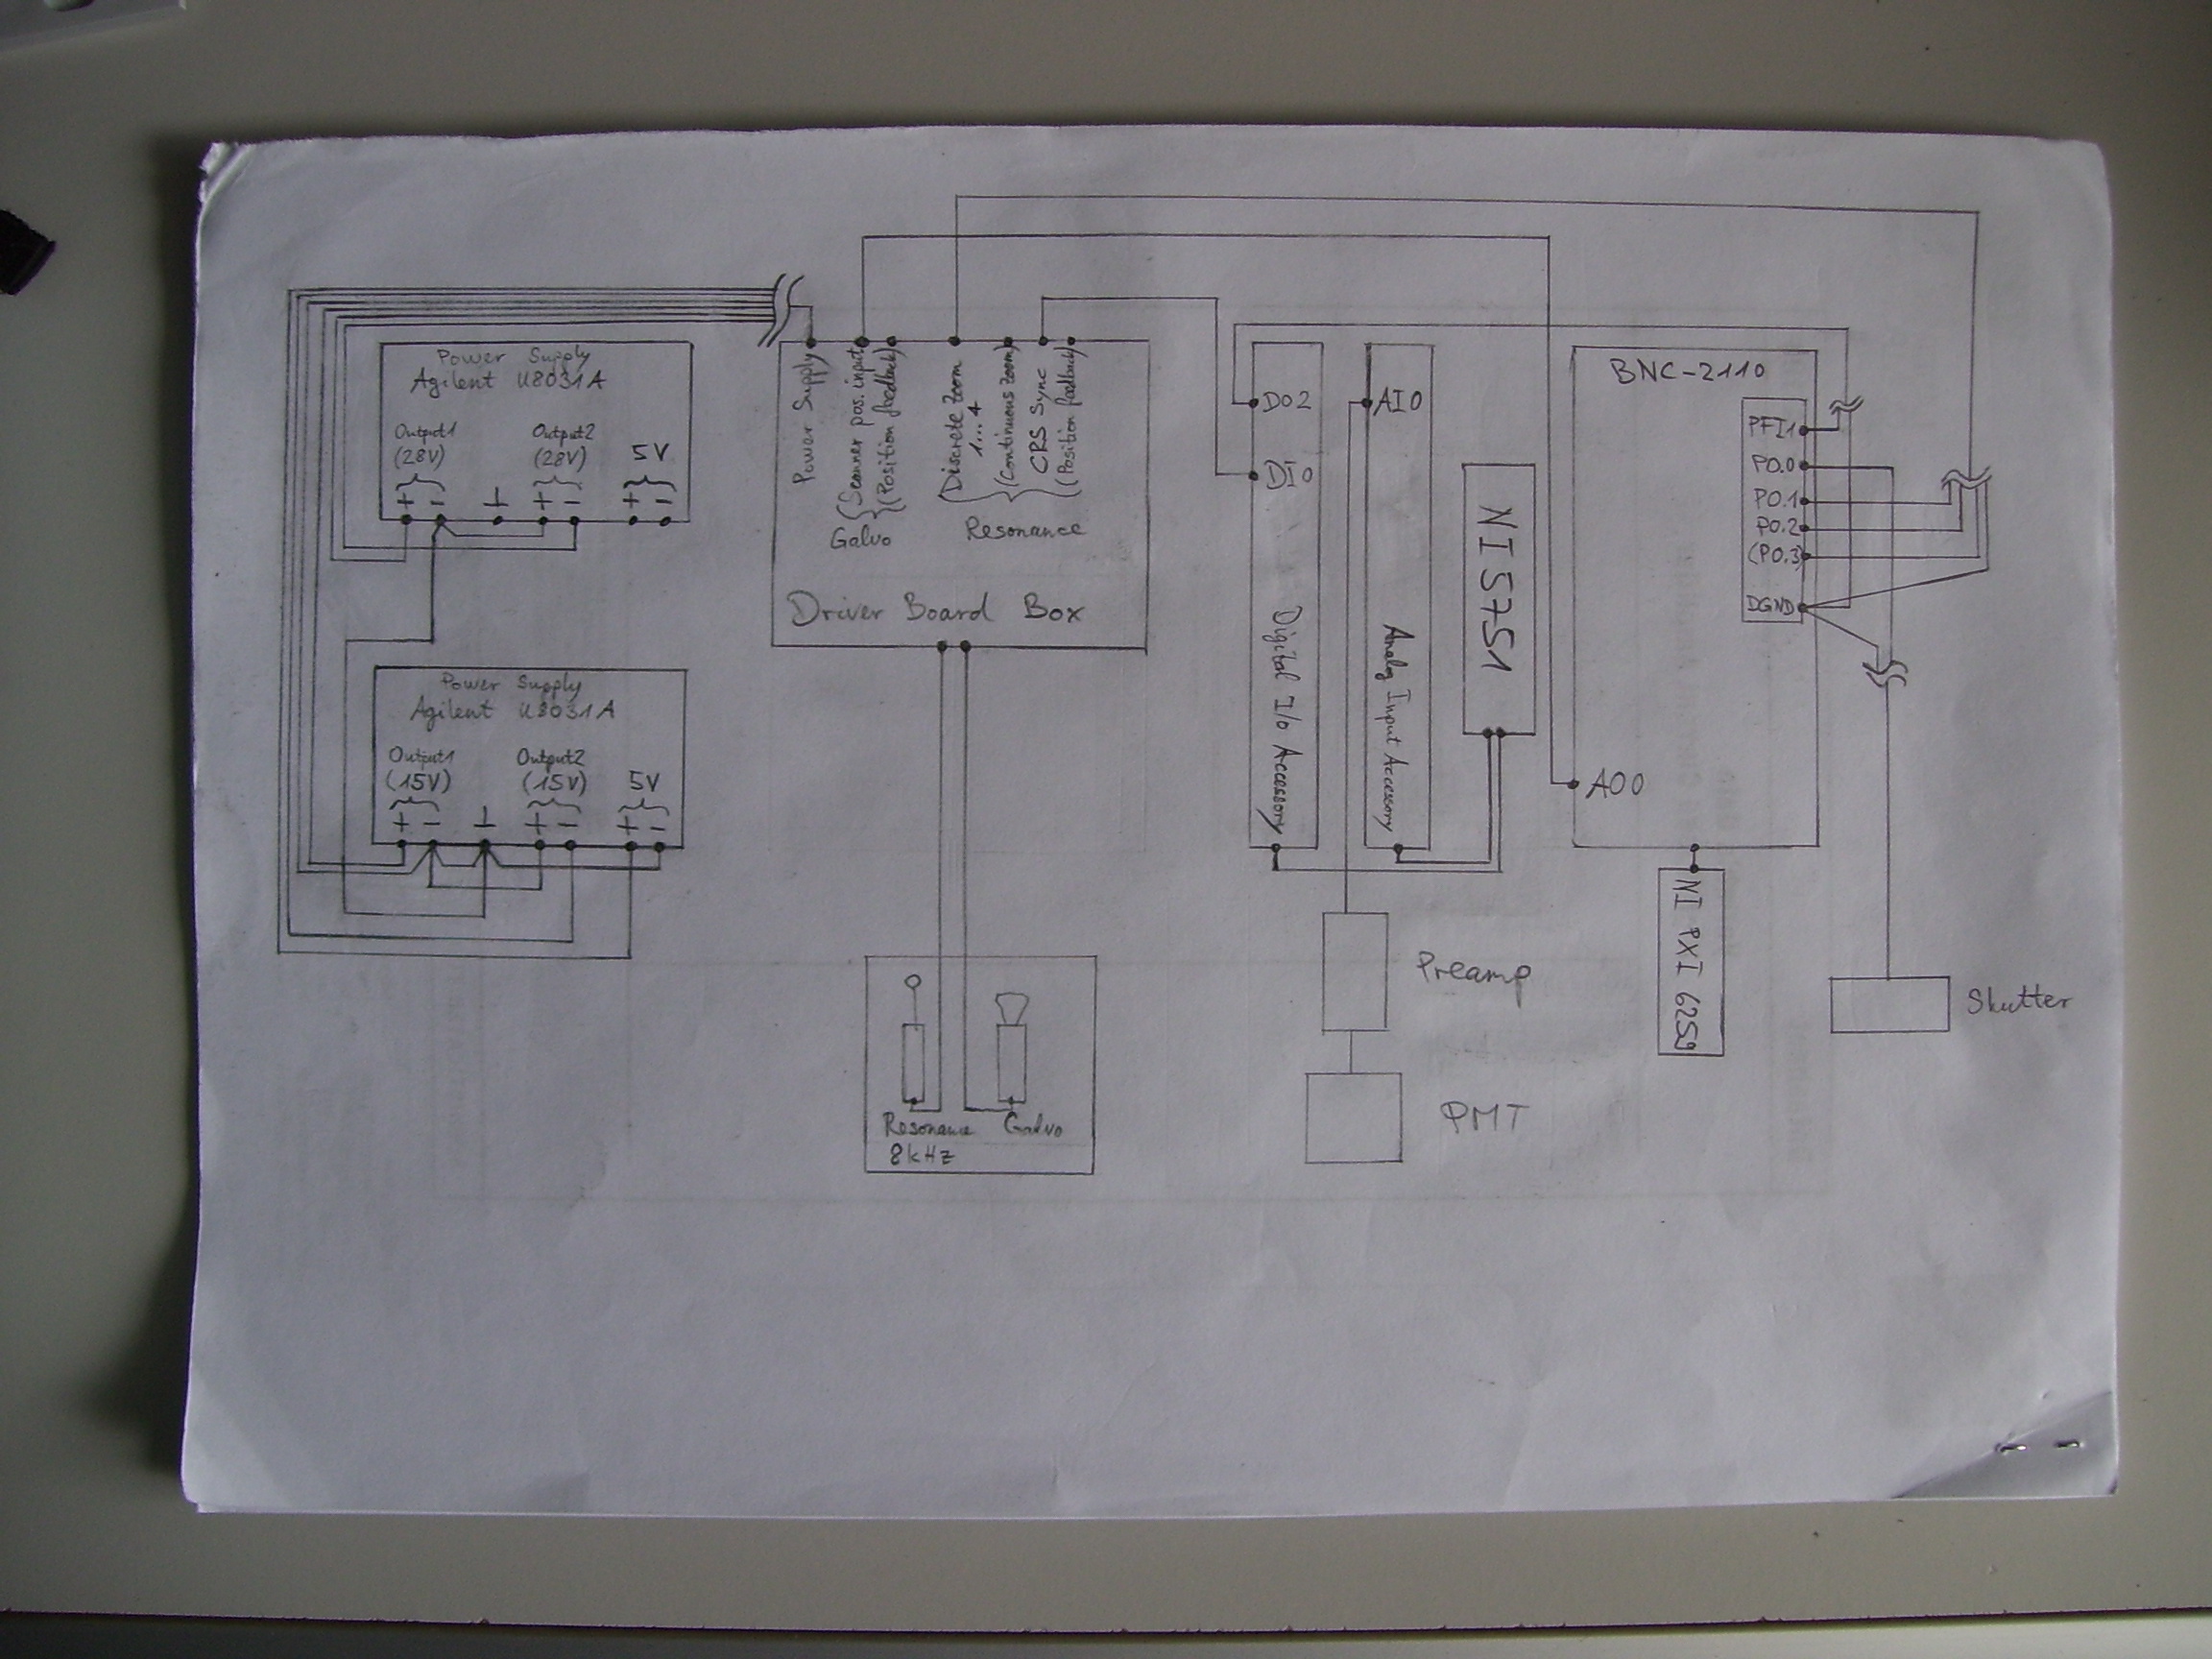 Power Supply
Agilent U8031A
Output1
(28V)
Output2
(28V)
5V
+ -
⊥
+ -
+ -
Power Supply
Agilent U8031A
Output1
(15V)
Output2
(15V)
5V
+ -
⊥
+ -
+ -
Power Supply
Scanner pos. input
(Position feedback)
Galvo
Discrete Zoom
1...4
(Continuous Zoom)
CRS Sync
(Position feedback)
Resonance
Driver Board Box
Resonance
8kHz
Galvo
DO2
DIO
Digital I/O Accessory
AIO
Analog Input Accessory
NI 5751
Preamp
PMT
BNC-2110
PFI1
P0.0
P0.1
P0.2
(P0.3)
DGND
AO0
NI PXI 6259
Shutter